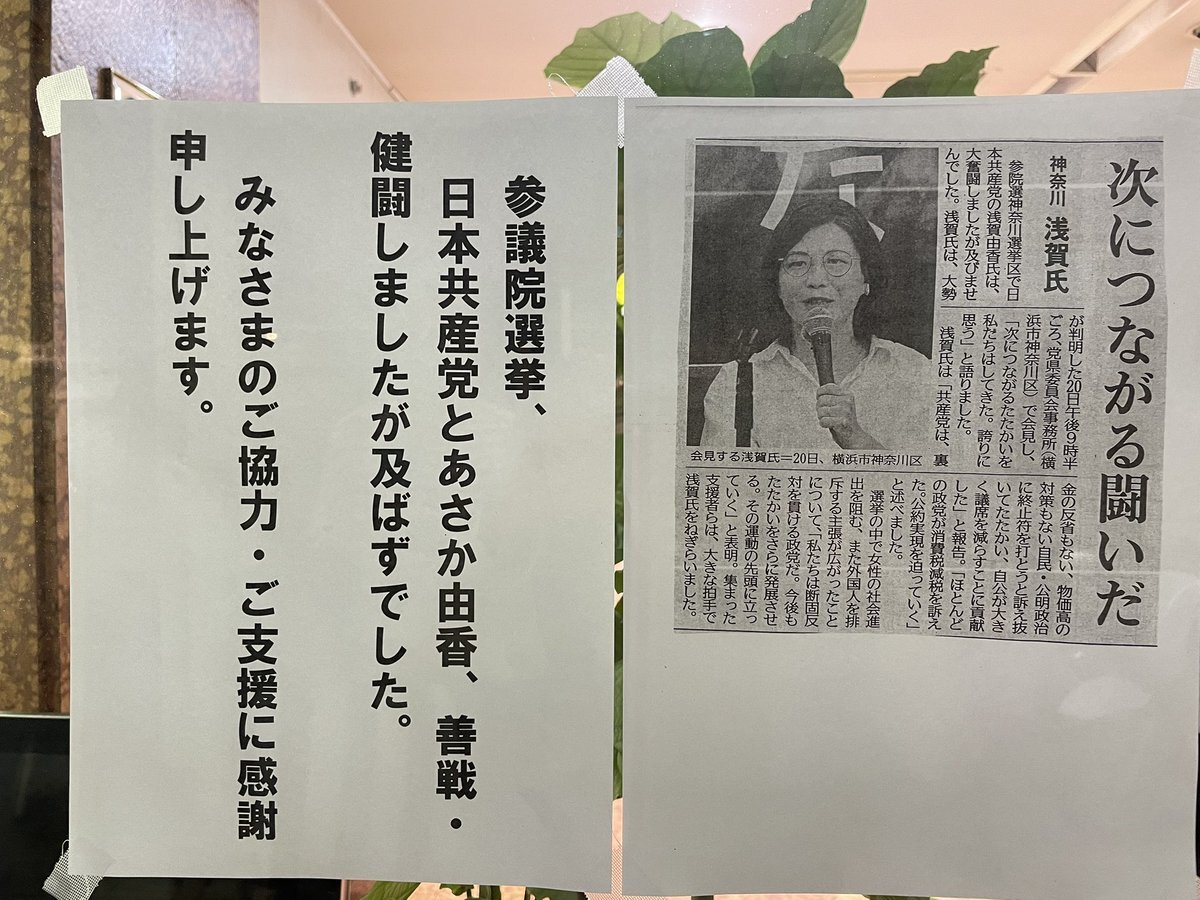 参議院選挙、
日本共産党とあさか由香、善戦・
健闘しましたが及ばずでした。
みなさまのご協力・ご支援に感謝
申し上げます。
次につながる闘いだ
神奈川 浅賀氏
参院選神奈川選挙区で日
本共産党の浅賀由香氏は、
大奮闘しましたが及びませ
んでした。浅賀氏は、大勢
が判明した20日午後9時半
ごろ、党県委員会事務所(横
浜市神奈川区)で会見し、
「次につながるたたかいを
私たちはしてきた。誇りに
思う」と語りました。
浅賀氏は「共産党は、裏
金の反省もない、物価高の
対策もない自民・公明政治
に終止符を打とうと訴え抜
いてたたかい、自公が大き
く議席を減らすことに貢献
した」と報告。「ほとんど
の政党が消費税減税を訴え
た。公約実現を迫っていく」
と述べました。
選挙の中で女性の社会進
出を阻む、また外国人を排
斥する主張が広がったこと
について、「私たちは断固反
対を貫ける政党だ。今後も
たたかいをさらに発展させ
る。その運動の先頭に立っ
ていく」と表明。集まった
支援者らは、大きな拍手で
浅賀氏をねぎらいました。
会見する浅賀氏=20日、横浜市神奈川区